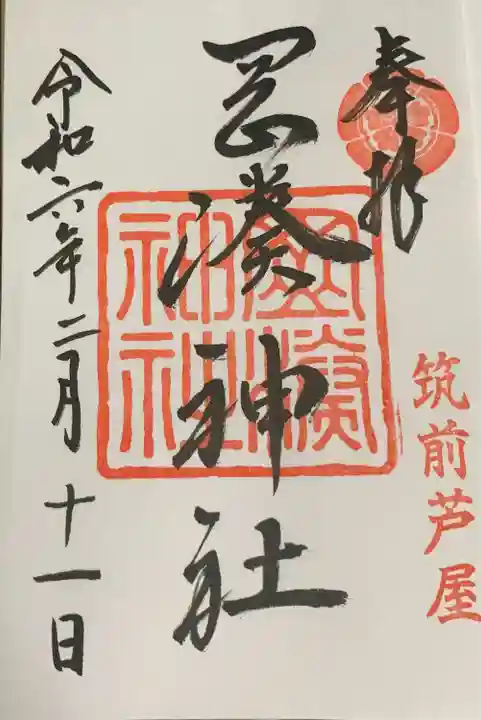 奉拝
筑前芦屋
岡湊神社
岡湊神社
令和六年二月十一日